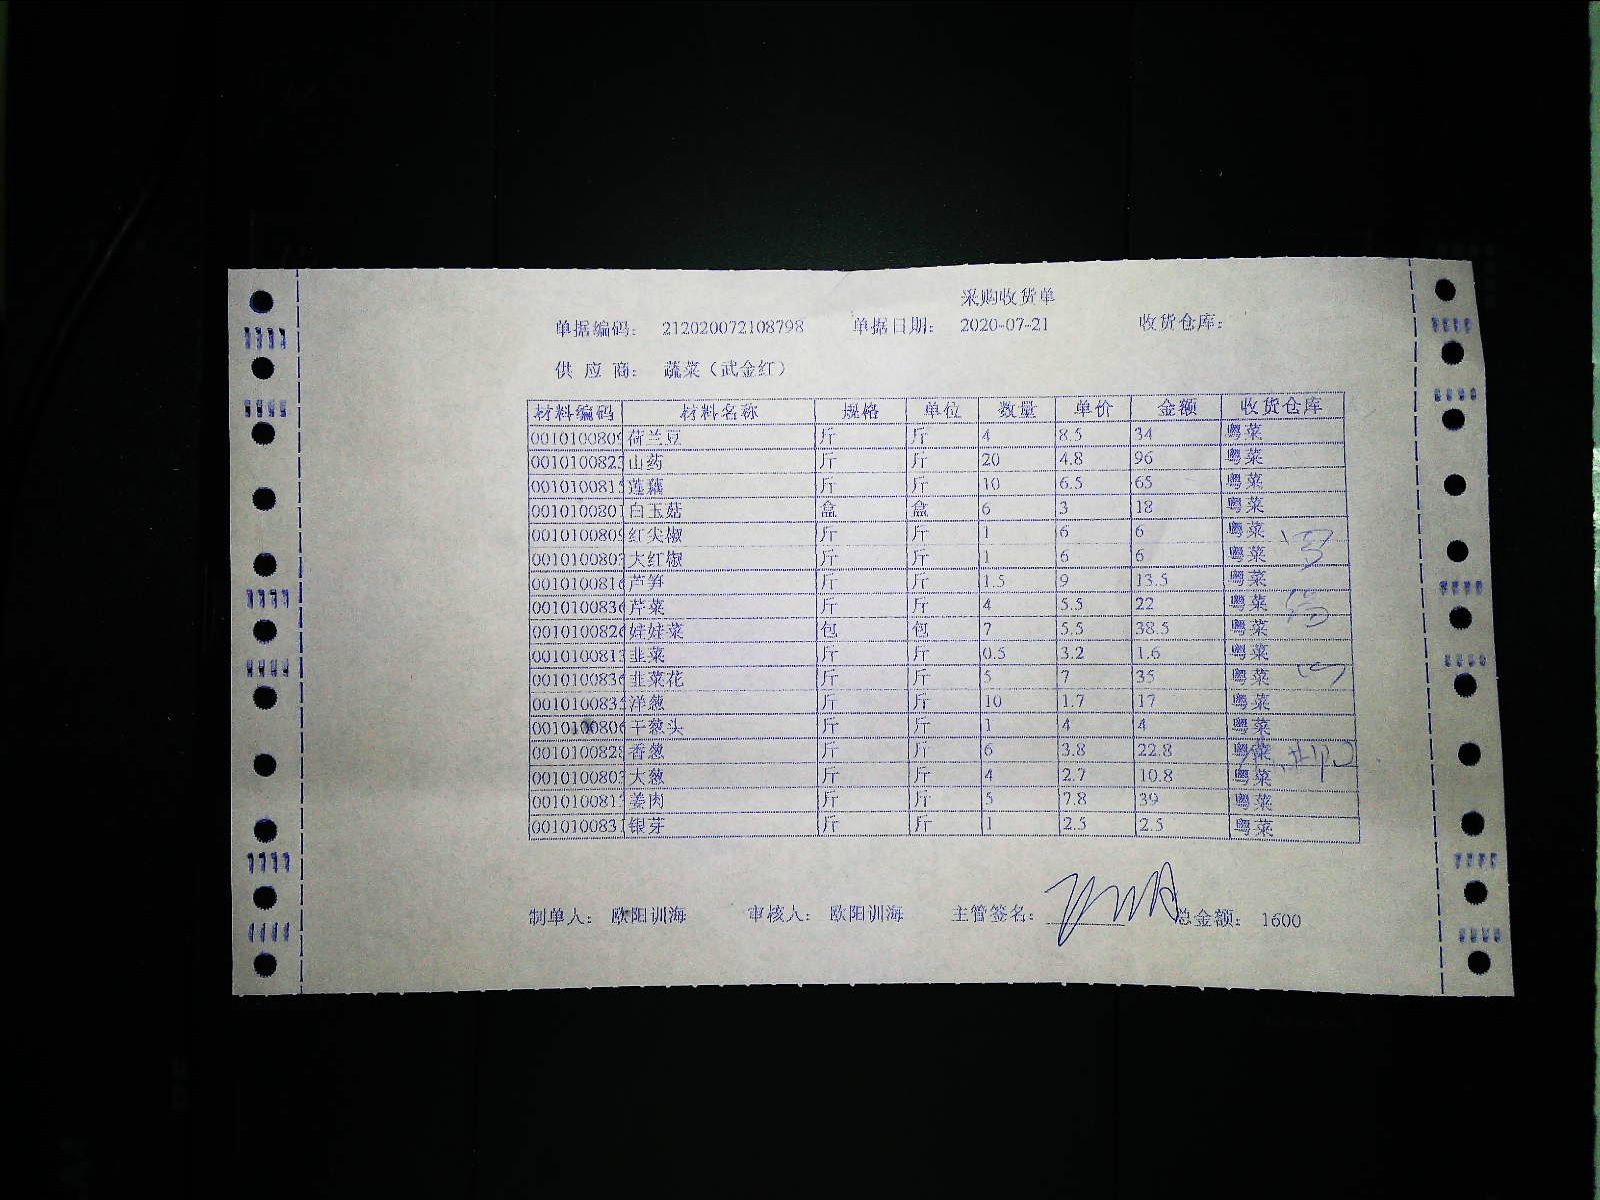 采购收货单
单据编码： 212020072108798 单据日期： 2020-07-21 收货仓库：
供 应 商： 蔬菜（武金红）
材料编码 材料名称 规格 单位 数量 单价 金额 收货仓库
0010100809 荷兰豆 斤 斤 4 8.5 34 粤菜
001010082 山药 斤 斤 20 4.8 96 粤菜
001010081 莲藕 斤 斤 10 6.5 65 粤菜
001010080 白玉菇 盒 盒 6 3 18 粤菜
001010080 红尖椒 斤 斤 1 6 6 粤菜
001010080 大红椒 斤 斤 1 6 6 粤菜
001010081 芦笋 斤 斤 1.5 9 13.5 粤菜
001010083 芹菜 斤 斤 4 5.5 22 粤菜
001010082 娃娃菜 包 包 7 5.5 38.5 粤菜
001010081 韭菜 斤 斤 0.5 3.2 1.6 粤菜
001010083 韭菜花 斤 斤 5 7 35 粤菜
001010083 洋葱 斤 斤 10 1.7 17 粤菜
001010080 干葱头 斤 斤 1 4 4 粤菜
001010082 香葱 斤 斤 6 3.8 22.8 粤菜
001010080 大葱 斤 斤 4 2.7 10.8 粤菜
001010081 姜肉 斤 斤 5 7.8 39 粤菜
001010083 银芽 斤 斤 1 2.5 2.5 粤菜
制单人： 欧阳训海 审核人： 欧阳训海 主管签名： 总金额： 1600